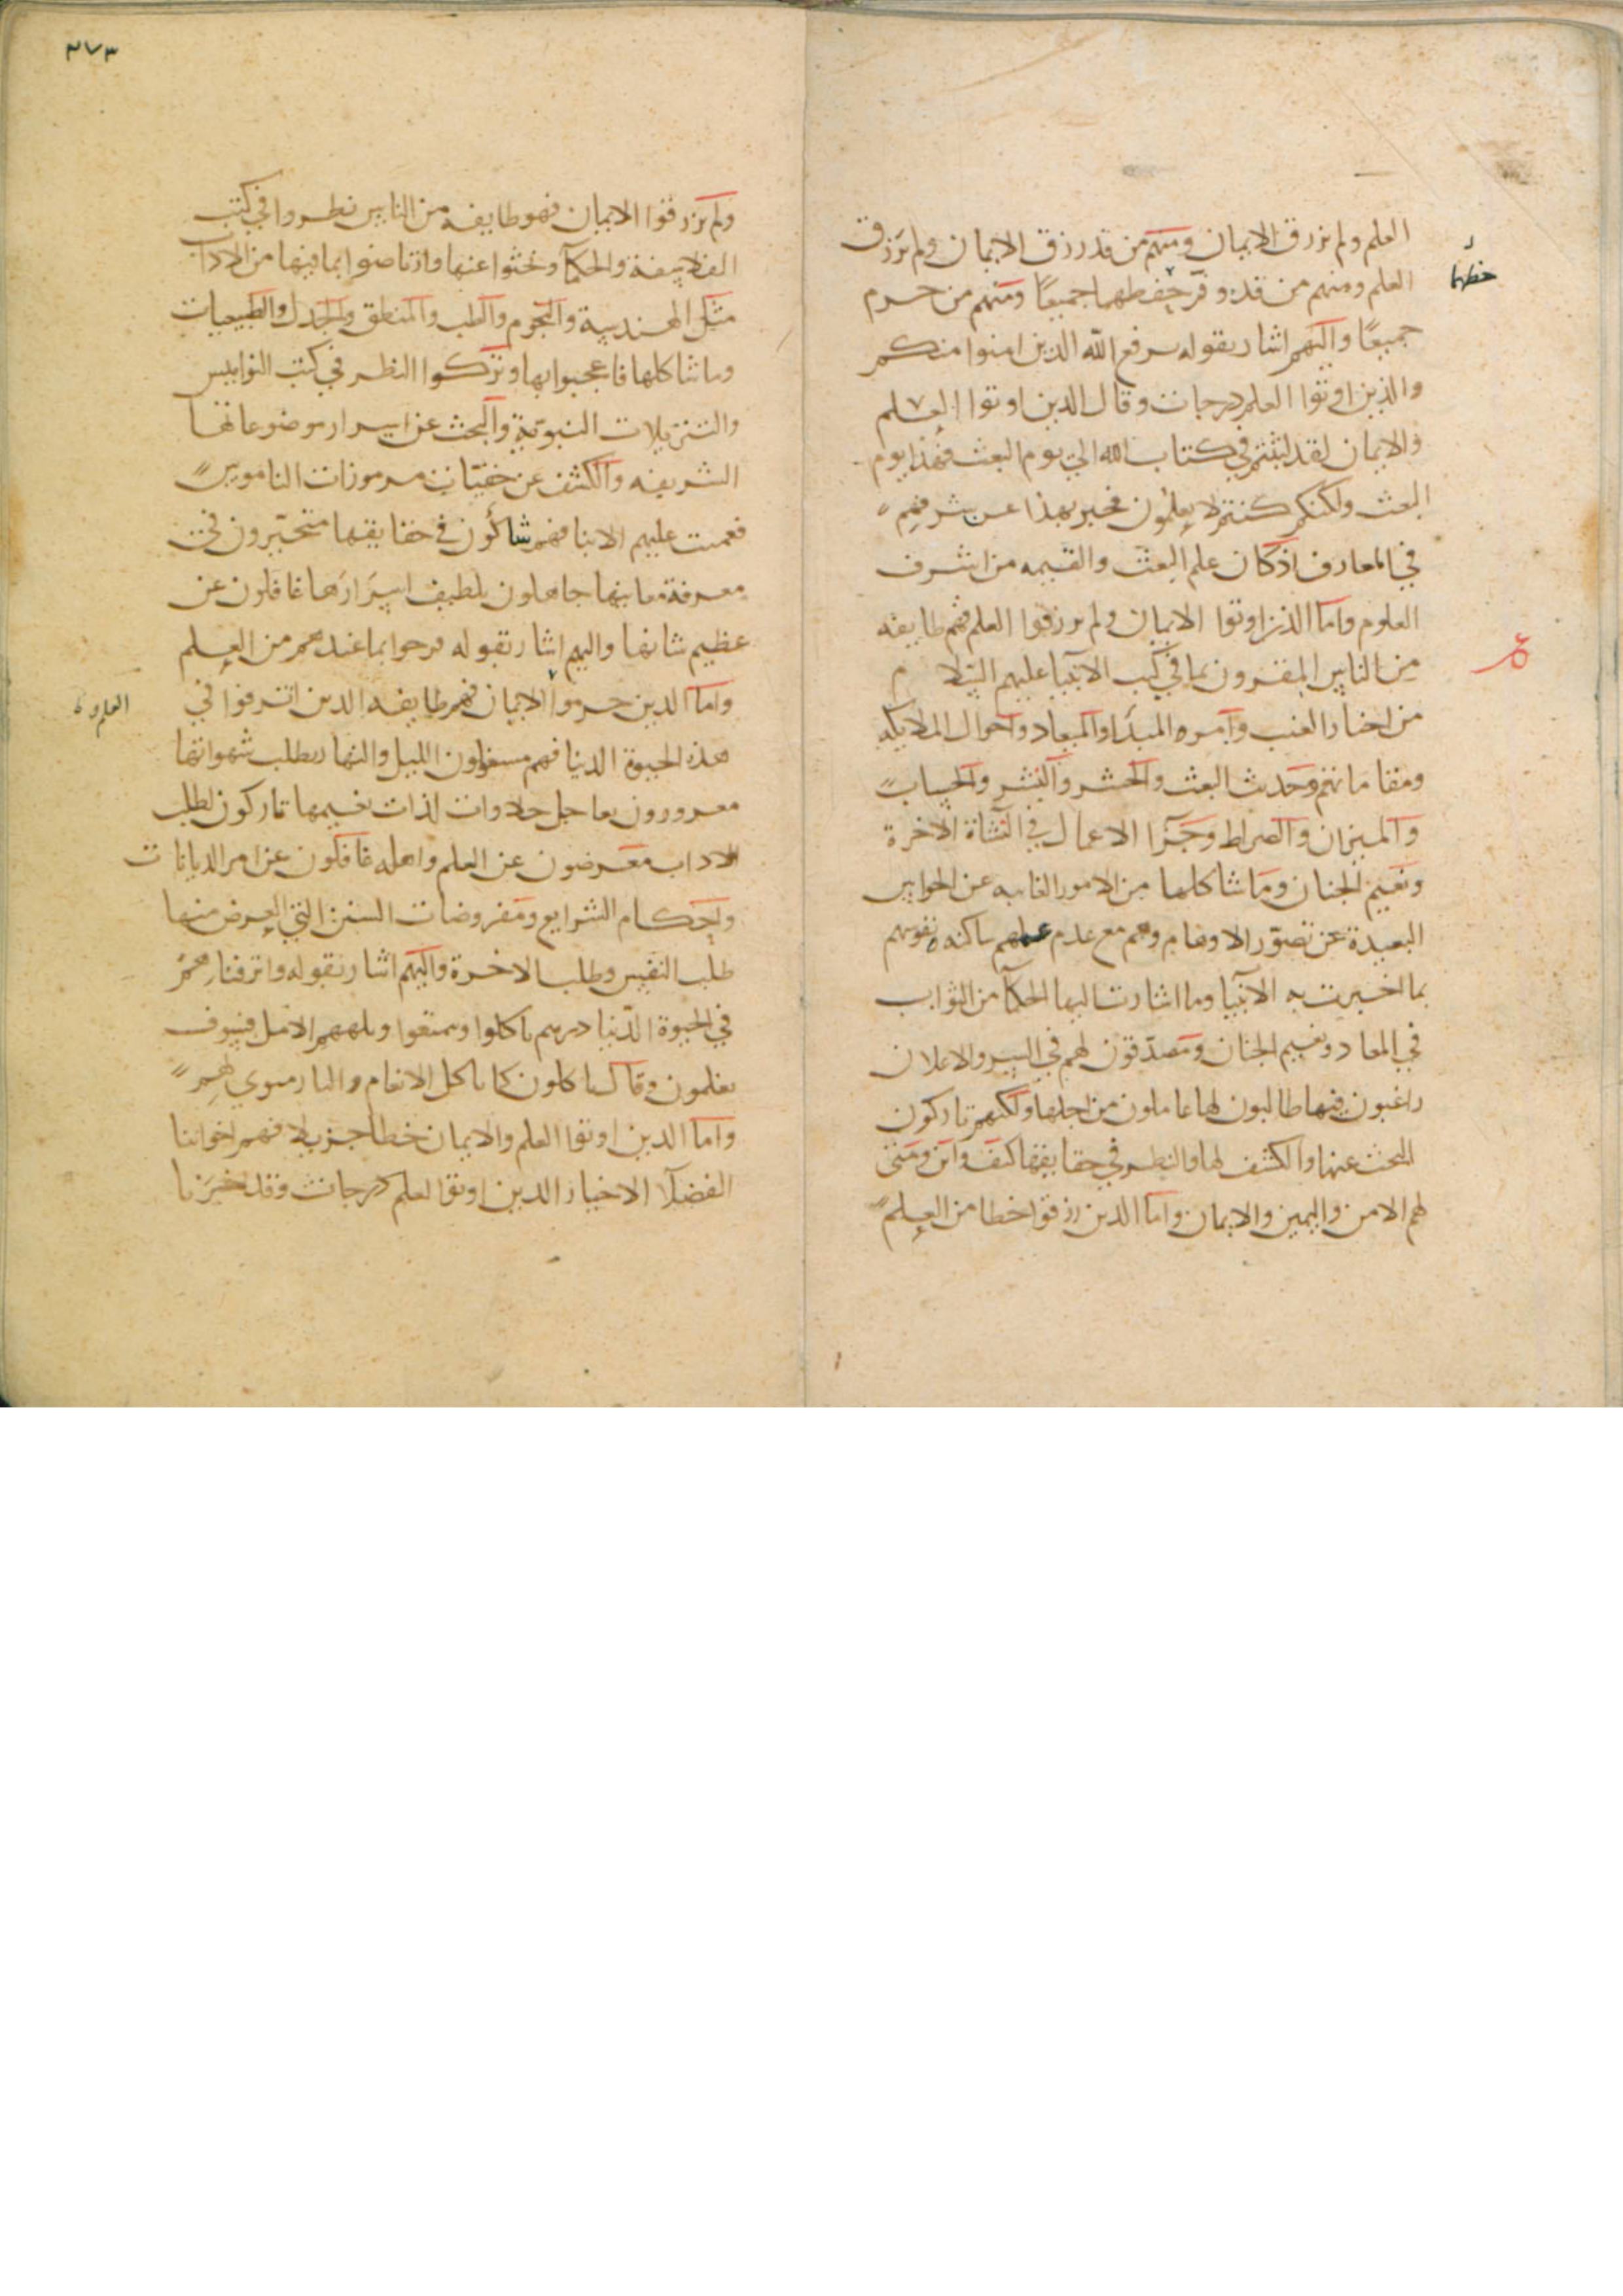 العلم ولم يرزق الايمان ومنهم من قد رزق الايمان ولم يرزق
العلم ومنهم من قد وفر حفظهما جميعًا ومنهم من حرم
حظهما
جميعًا واليهم اشار بقوله يرفع الله الذين امنوا منكم
والذين اوتوا العلم درجات وقال الذين اوتوا العلم
والايمان لقد لبثتم في كتاب الله الى يوم البعث فهذا يوم
البعث ولكنكم كنتم لا يعلمون فخبر بهذا عن شرفهم
في المعارف اذ كان علم البعث والقيمه من اشرف
العلوم واما الذين اوتوا الايمان ولم يرزقوا العلم فهم طايفه
من الناس المقرون بما في كتب الانبيا عليهم السلام
من اخبار الغيب وامره المبدا والمعاد واحوال الملايكه
ومقاماتهم وحديث البعث والحشر والنشر والحساب
والميزان والصراط وجزا الاعمال في النشاة الاخرة
ونعيم الجنان وما شاكلها من الامور الغايبه عن الحواس
البعيدة عن تصور الاوهام وهم مع عدم علمهم ساكنه نفوسهم
بما اخبرت به الانبيا وما اشارت اليها الحكما من الثواب
في المعاد ونعيم الجنان ومصدقون لهم في السر والاعلان
راغبون فيها طالبون لها عاملون من اجلها ولكنهم تاركون
للبحث عنها والكشف لها والنظر في حقايقها كيف واين ومتى
لهم الامن واليمين والايمان واما الذين رزقوا حظا من العلم
٢٧٣
ولم يرزقوا الايمان فهو طايفه من الناس نظروا في كتب
الفلاسفة والحكما وبحثوا عنها وارتاضوا بما فيها من الاداب
مثل الهندسة والنجوم والطب والمنطق والجدل والطبيعيات
وما شاكلها فاعجبوا بها وتركوا النظر في كتب النواميس
والتنزيلات النبوية والبحث عن اسرار موضوعاتها
الشريفه والكشف عن خفيات مرموزات الناموس
فعميت عليهم الانبا فهم شاكون في حقايقها متحيرون في
معرفة معانيها جاهلون بلطيف اسرارها غافلون عن
عظيم شانها واليهم اشار بقوله فرحوا بما عندهم من العلم
واما الذين حرموا الايمان فهم طايفه الذين اترفوا في
العلم و
هذه الحيوة الدنيا فهم مشغولون الليل والنهار بطلب شهواتها
مغرورون بعاجل حلاوات لذات نعيمها تاركون لطلب
الاداب معرضون عن العلم واهله غافلون عن امر الديانات
واحكام الشرايع ومفروضات السنن التي الغرض منها
طلب النفس وطلب الاخرة واليهم اشار بقوله واترفناهم
في الحيوة الدنيا ذرهم ياكلوا ويتمتعوا ويلههم الامل فسوف
يعلمون وقال ياكلون كما ياكل الانعام والنار مثوى لهم
واما الذين اوتوا العلم والايمان حظا جزيلا فهم اخواننا
الفضلا الاخيار الذين اوتوا العلم درجات وقد خبرنا